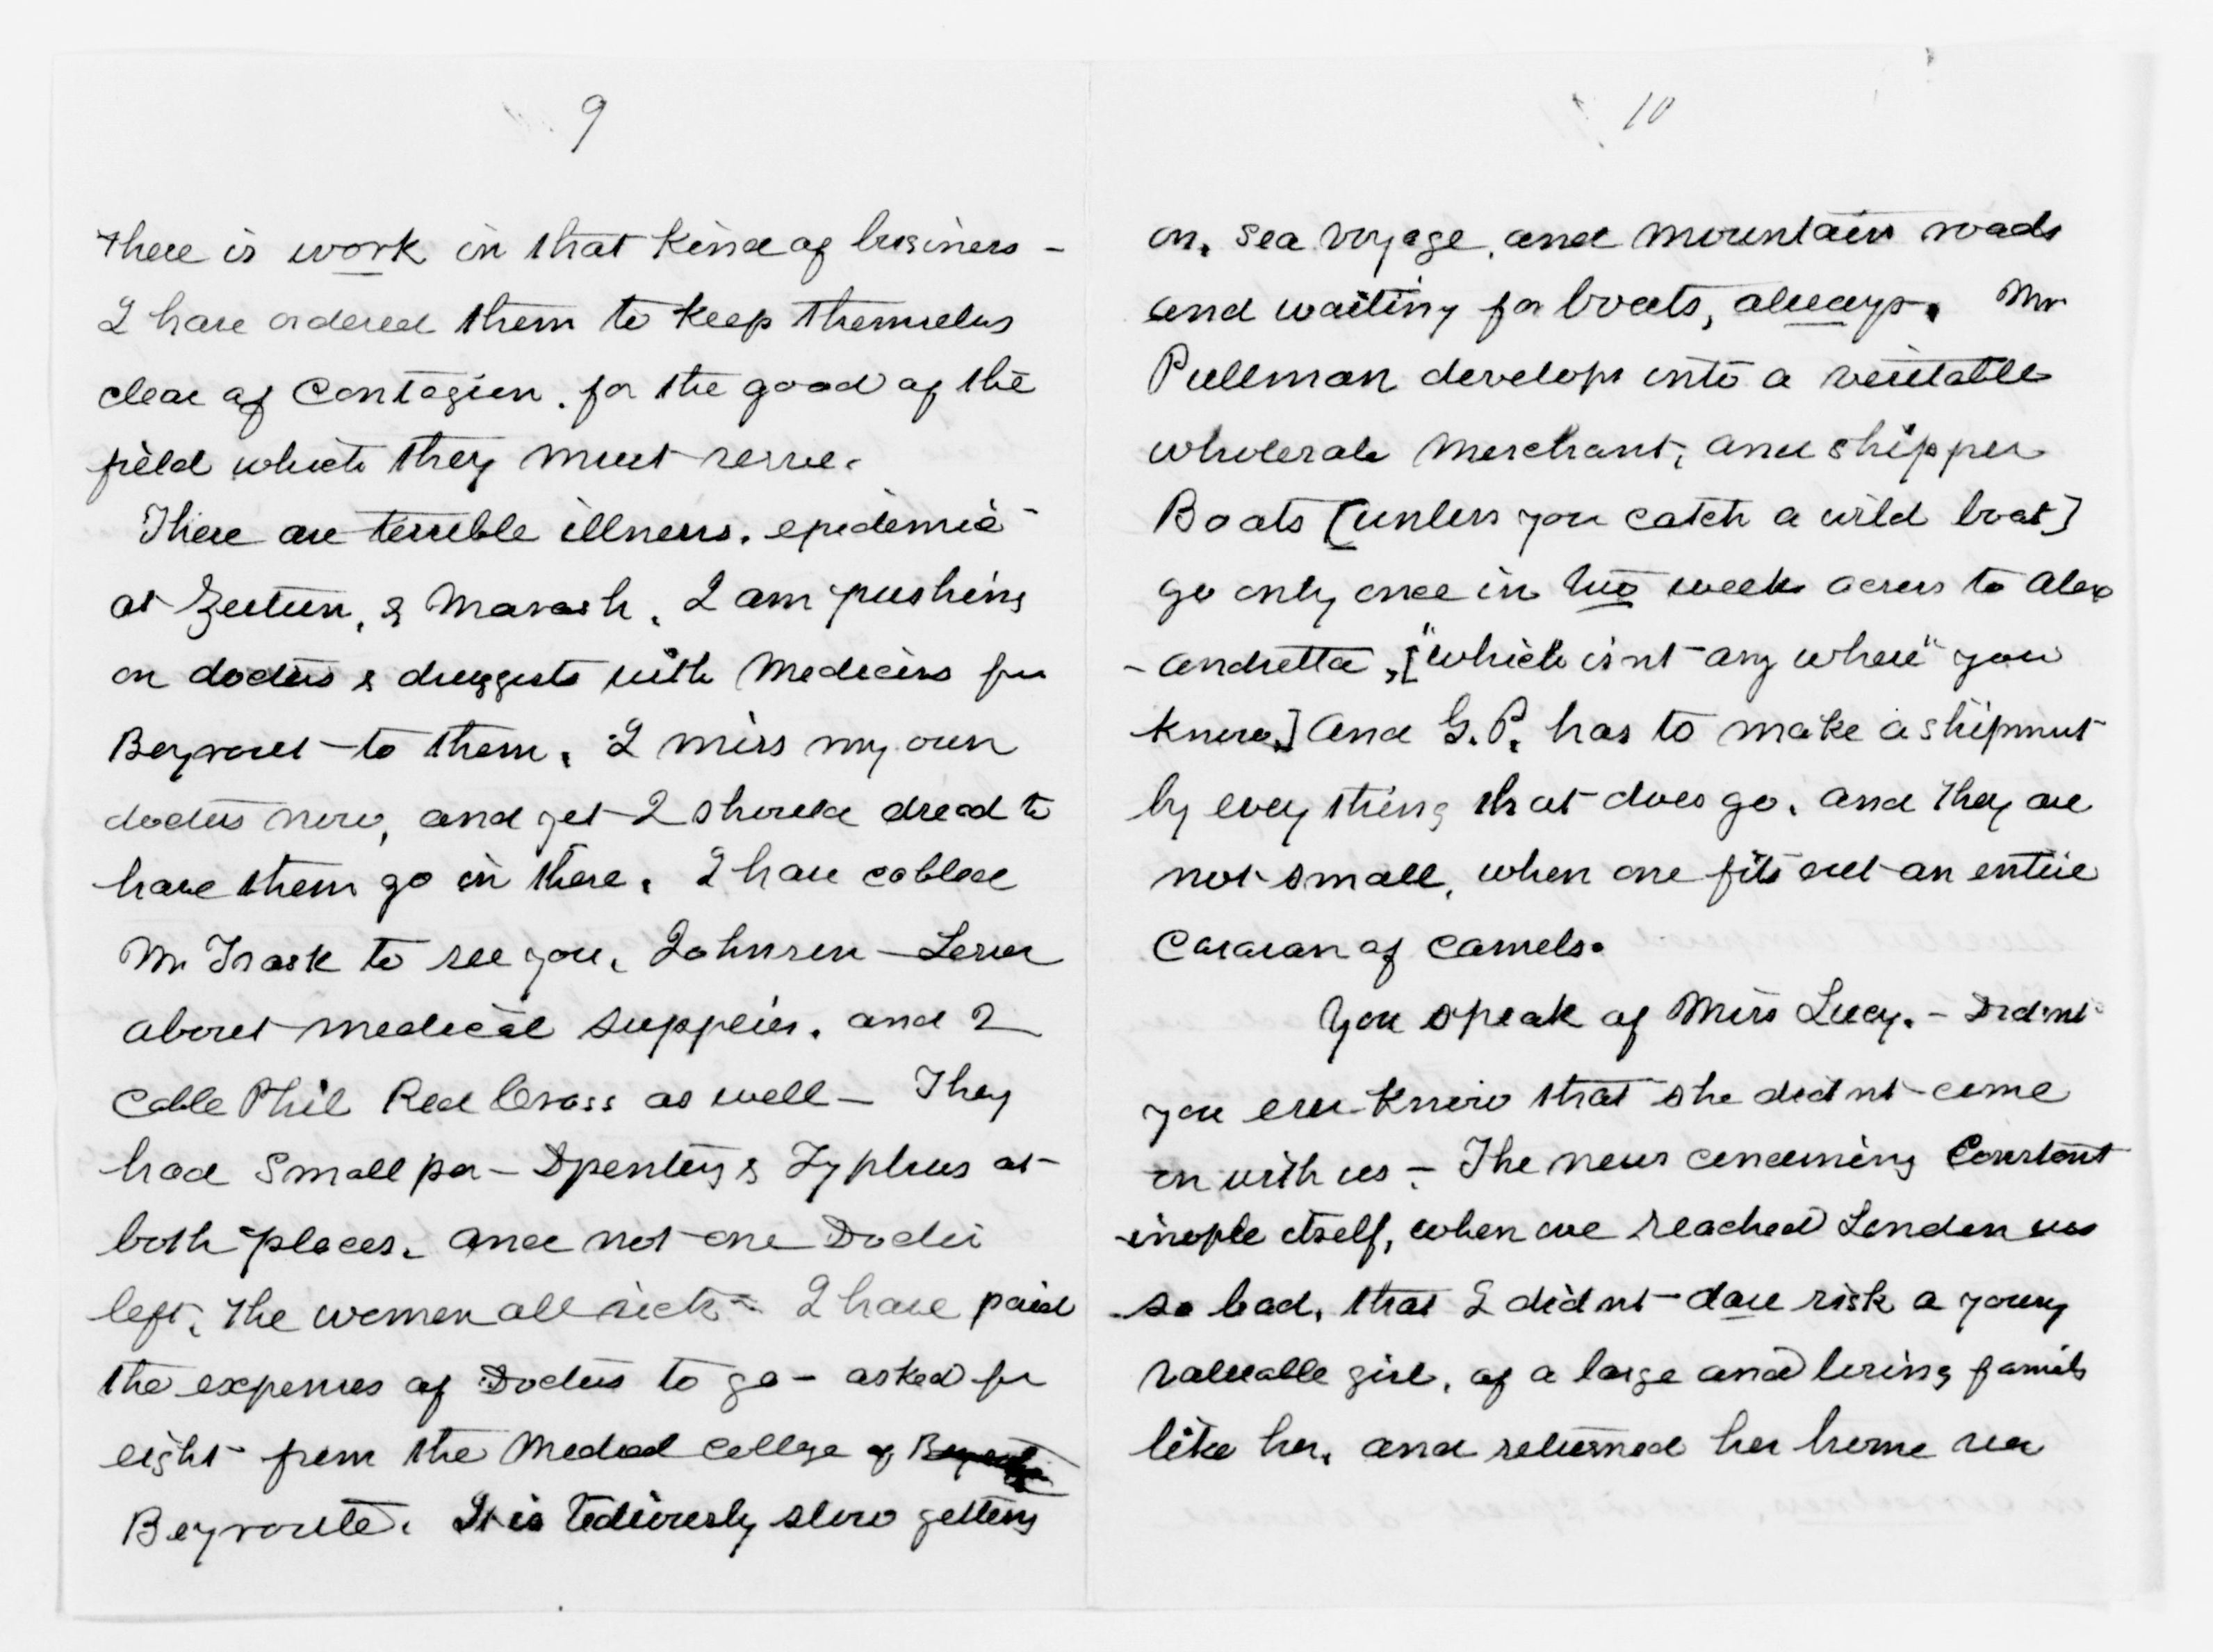 9
there is work in that kind of business –
I have ordered them to keep themselves
clear of Contagion. for the good of the
field which they must serve.
There are terrible illness. epidemic
at Zeitun, & Marash. I am pushing
on doctors & druggists with Medicins from
Beyrout – to them. I miss my own
doctors now, and yet I should dread to
have them go in there. I have cabled
Mr Trask to see you, Johnson –
about medical supplies. and I
Cable Phil Red Cross as well – They
had Small pox – Dysentery & Typhus at
both places. and not one Doctor
left. the women all sick – I have paid
the expenses of Doctors to go – asked for
eight from the Medical College of
Beyroute. It is tediously slow getting
10
on, Sea voyage, and mountain roads
and waiting for boats, always. Mr
Pullman develops into a veritable
wholesale Merchant, and shipper
Boats [unless you catch a wild boat]
go only once in two weeks across to Alex
- andretta, ["which isnt any where" you
know.] And G. P. has to make a shipment
by every thing that does go. and they are
not small, when one fits out an entire
Caravan of Camels.
You speak of Miss Lucy. – Didnt
you ever know that she didnt come
on with us – The news concerning Constant
-inople itself, when we reached London was
so bad, that I didnt dare risk a young
valuable girl, of a large and loving family
like her, and returned her home via